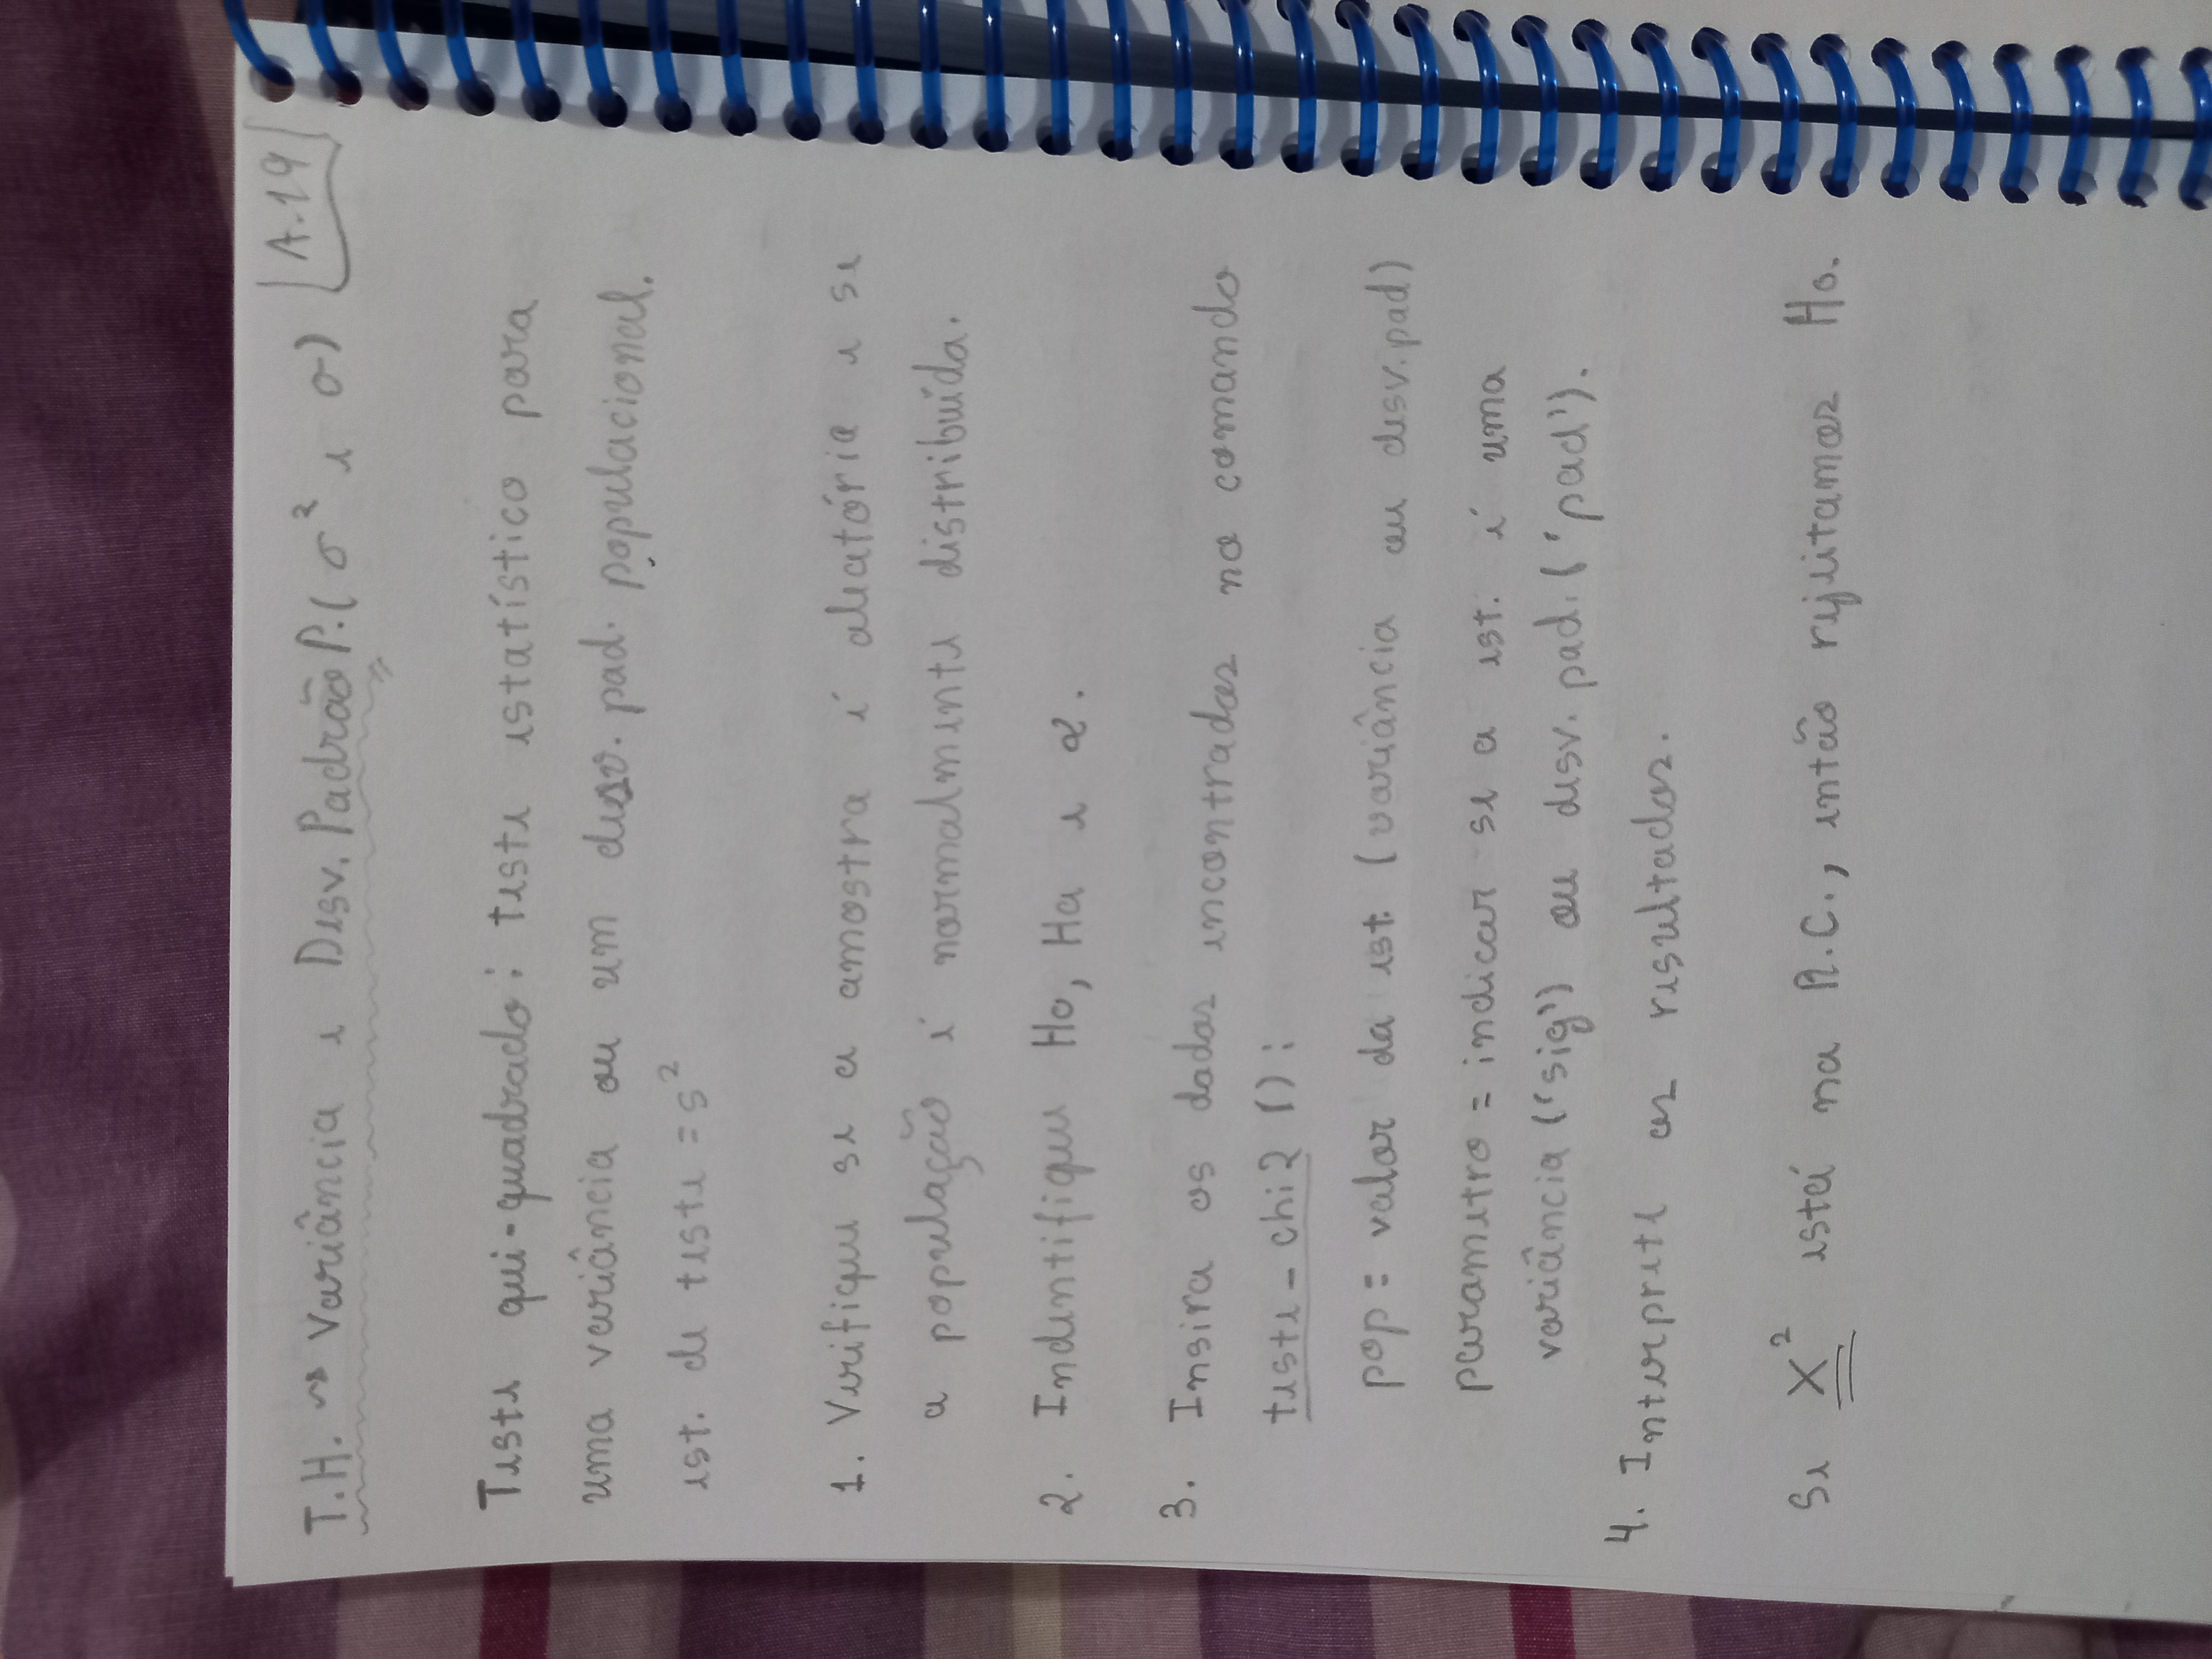 T.H. ~> Variância e Desv. Padrão P. (σ² e σ) A.19
Teste qui-quadrado: teste estatístico para
uma variância ou um desv. pad. populacional.
est. de teste = s²
1. Verifique se a amostra é aleatória e se
a população é normalmente distribuída.
2. Indentifique Ho, Ha e α.
3. Insira os dados encontrados no comando
teste_chi2 ():
pop = valor da est. (variância ou desv. pad)
parametro = indicar se a est. é uma
variância ('sig') ou desv. pad. ('pad').
4. Interprete os resultados.
Se X² está na R.C., então rejeitamos Ho.